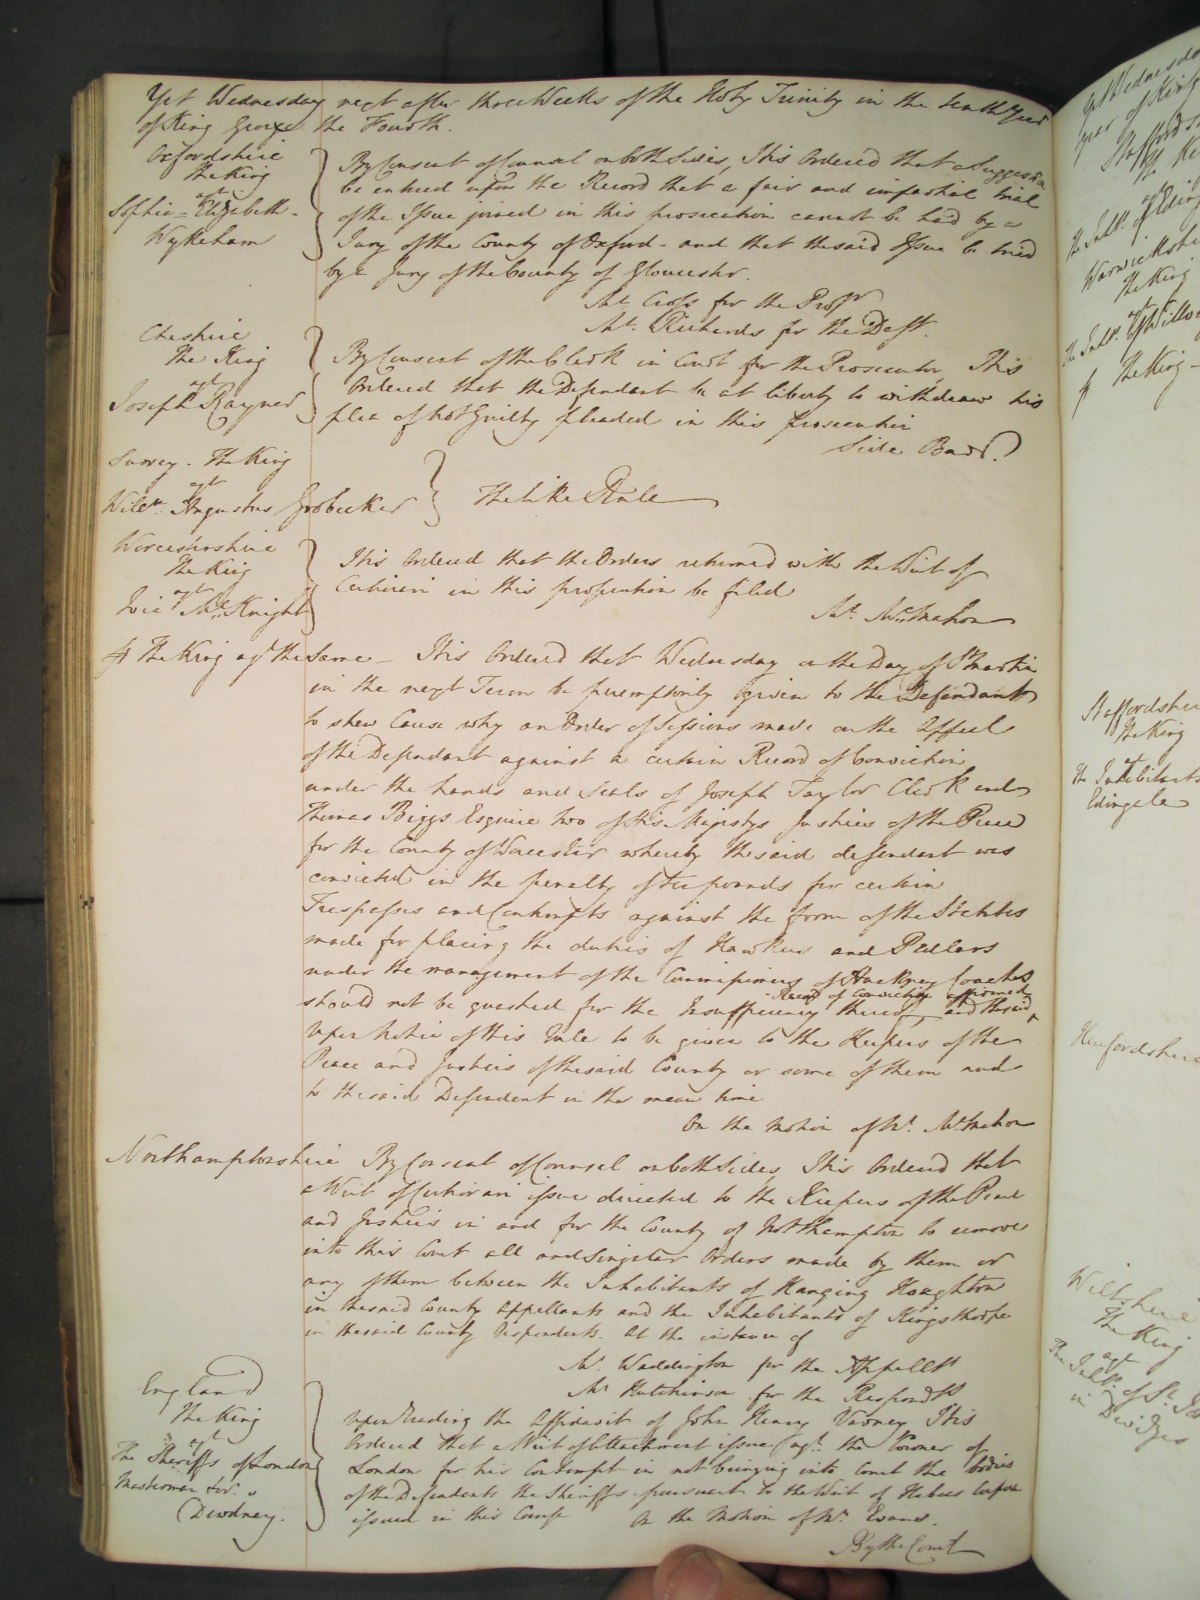 Yet Wednesday next after three Weeks of the Holy Trinity in the tenth Year
of King George the Fourth.
Oxfordshire
The King
agt
Sophia = Elizabeth -
Wykeham
By Consent of Counsel on both Sides, It is Ordered that a Suggestion
be entered upon the Record that a fair and impartial trial
of the Issue joined in this prosecution cannot be had by a
Jury of the County of Oxford - and that the said Issue be tried
by a Jury of the County of Gloucester.
Mr. Cross for the Prosr
Mr. Richards for the Deft.
Cheshire
The King
agt
Joseph Rayner
By Consent of the Clerk in Court for the Prosecutor It is
Ordered that the Defendant be at liberty to withdraw his
plea of not Guilty pleaded in this prosecution
Side Bar.
Surrey. The King
agt
Willm. Augustus Grobecker
The like Rule
Worcestershire
The King
agt
McKnight
It is Ordered that the Orders returned with the Writ of
Certiorari in this prosecution be filed
Mr. McMahon
The King agt the Same - It is Ordered that Wednesday on the Day of St Martin
in the next Term be peremptorily given to the Defendant
to shew Cause why an Order of Sessions made on the Appeal
of the Defendant against a certain Record of Conviction
under the hands and Seals of Joseph Taylor Clerk and
Thomas Biggs Esquire two of His Majestys Justices of the Peace
for the County of Worcester whereby the said defendant was
convicted in the penalty of ten pounds for certain
Trespasses and Contempts against the form of the Statutes
made for placing the duties of Hawkers and Pedlars
under the management of the Commissioners of Hackney Coaches
Record of Conviction affirmed
should not be quashed for the Insufficiency thereof, and the said
Upon Notice of this Rule to be given to the Keepers of the
Peace and Justices of the said County or some of them and
to the said Defendant in the mean time
On the Motion of Mr. McMahon
Northamptonshire By Consent of Counsel on both Sides It is Ordered that
a Writ of Certiorari issue directed to the Keepers of the Peace
and Justices in and for the County of Northampton to remove
into this Court all and Singular Orders made by them or
any of them between the Inhabitants of Hanging Houghton
in the said County Appellants and the Inhabitants of Kingsthorpe
in the said County Respondents. At the instance of
Mr. Waddington for the Appellts
Mr Hutchinson for the Respondts
England
The King
agt
The Sheriffs of London
Dewdney.
Upon Reading the Affidavit of John Henry Varney It is
Ordered that a Writ of Attachment issue agt. the Coroner of
London for his Contempt in not bringing into Court the bodies
of the Defendants the Sheriffs pursuant to the Writ of Habeas Corpus
issued in this Cause On the Motion of Mr. Evans.
By the Court
Staffordshire
The King
agt
The Inhabitants
Edingale
Herefordshire
Wiltshire
The King
agt
The Inhts. of St. 
in Devizes